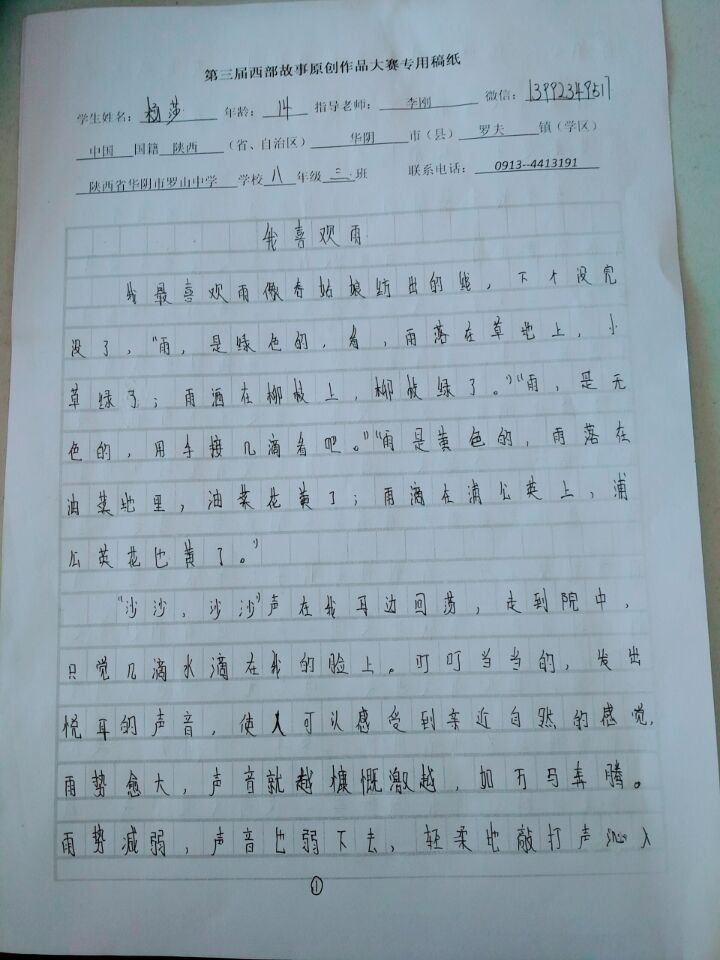 第三届西部故事原创作品大赛专用稿纸
学生姓名：杨莎 年龄：14 指导老师：李刚 微信：13992349517
中国 国籍 陕西（省、自治区）华阴 市（县）罗夫 镇（学区）
陕西省华阴市罗山中学 学校 八 年级 三 班 联系电话：0913--4413191
我喜欢雨
我最喜欢雨像春姑娘纺出的线，下个没完
没了，“雨，是绿色的，看，雨落在草地上，小
草绿了；雨洒在柳枝上，柳枝绿了。”“雨，是无
色的，用手接几滴看吧。”“雨是黄色的，雨落在
油菜地里，油菜花黄了；雨滴在浦公英上，浦
公英花也黄了。”
“沙沙，沙沙”声在我耳边回荡，走到院中，
只觉几滴水滴在我的脸上。叮叮当当的，发出
悦耳的声音，使人可以感受到亲近自然的感觉，
雨势愈大，声音就越慷慨激越，如万马奔腾。
雨势减弱，声音也弱下去，轻柔地敲打声沁入
①